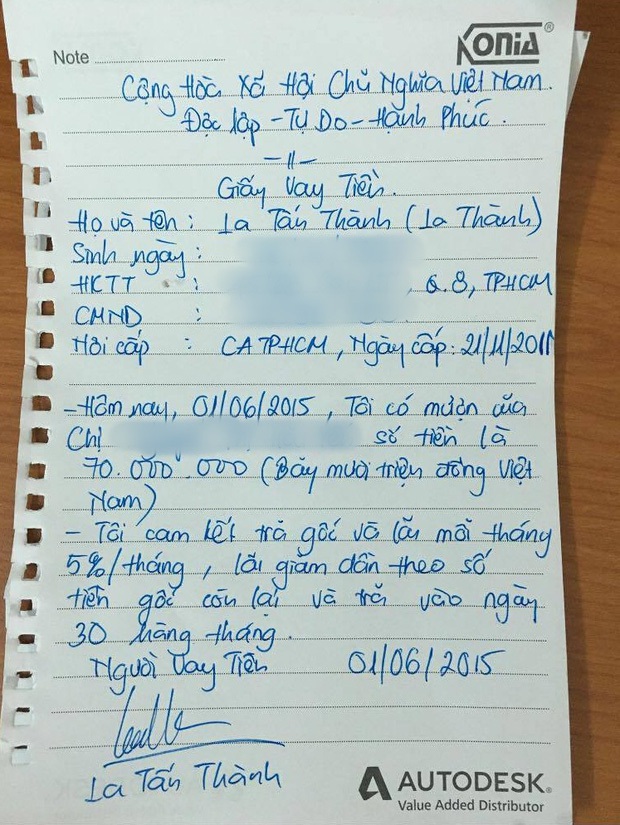 Note
KONIA
Cộng Hòa Xã Hội Chủ Nghĩa Việt Nam.
Độc lập - Tự Do - Hạnh Phúc.
-11-
Giấy Vay Tiền.
Họ và tên : La Tấn Thành (La Thành)
Sinh ngày :
HKTT : , Q.8, TPHCM
CMND :
Nơi cấp : CA TPHCM, Ngày cấp: 21/11/2011
- Hôm nay, 01/06/2015, Tôi có mượn của
Chị số tiền là
70.000.000 (Bảy mươi triệu đồng Việt
Nam)
- Tôi cam kết trả gốc và lãi mỗi tháng
5%/tháng, lãi giảm dần theo số
tiền gốc còn lại và trả vào ngày
30 hàng tháng.
Người Vay Tiền 01/06/2015
La Tấn Thành
AUTODESK®
Value Added Distributor